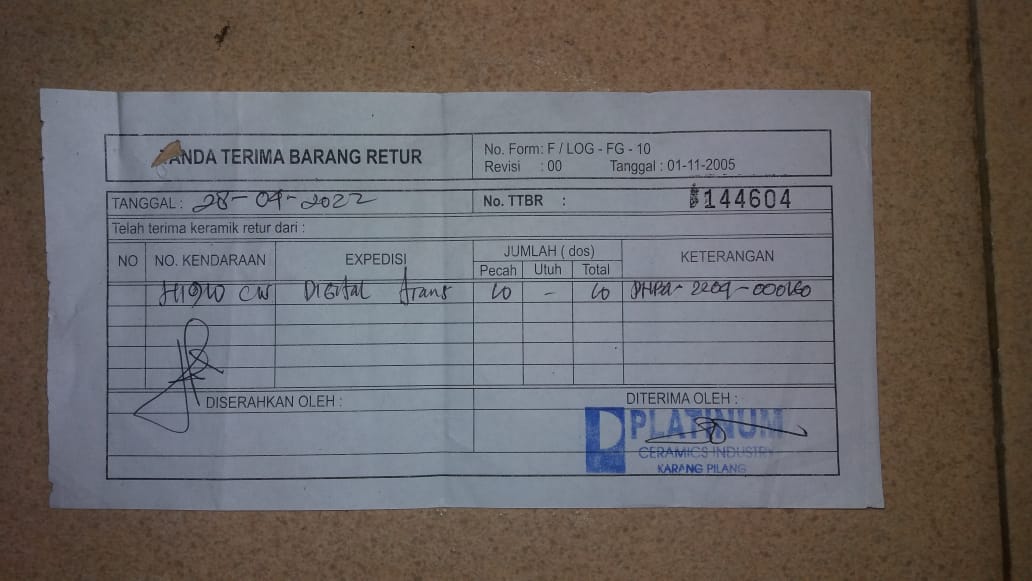 TANDA TERIMA BARANG RETUR
No. Form: F / LOG - FG - 10
Revisi : 00 Tanggal : 01-11-2005
TANGGAL : 28-09-2022
No. TTBR : 144604
Telah terima keramik retur dari :
NO NO. KENDARAAN EXPEDISI JUMLAH ( dos) KETERANGAN
Pecah Utuh Total
Digital trans - 
DISERAHKAN OLEH : DITERIMA OLEH :
PLATINUM
CERAMICS INDUSTRY
KARANG PILANG